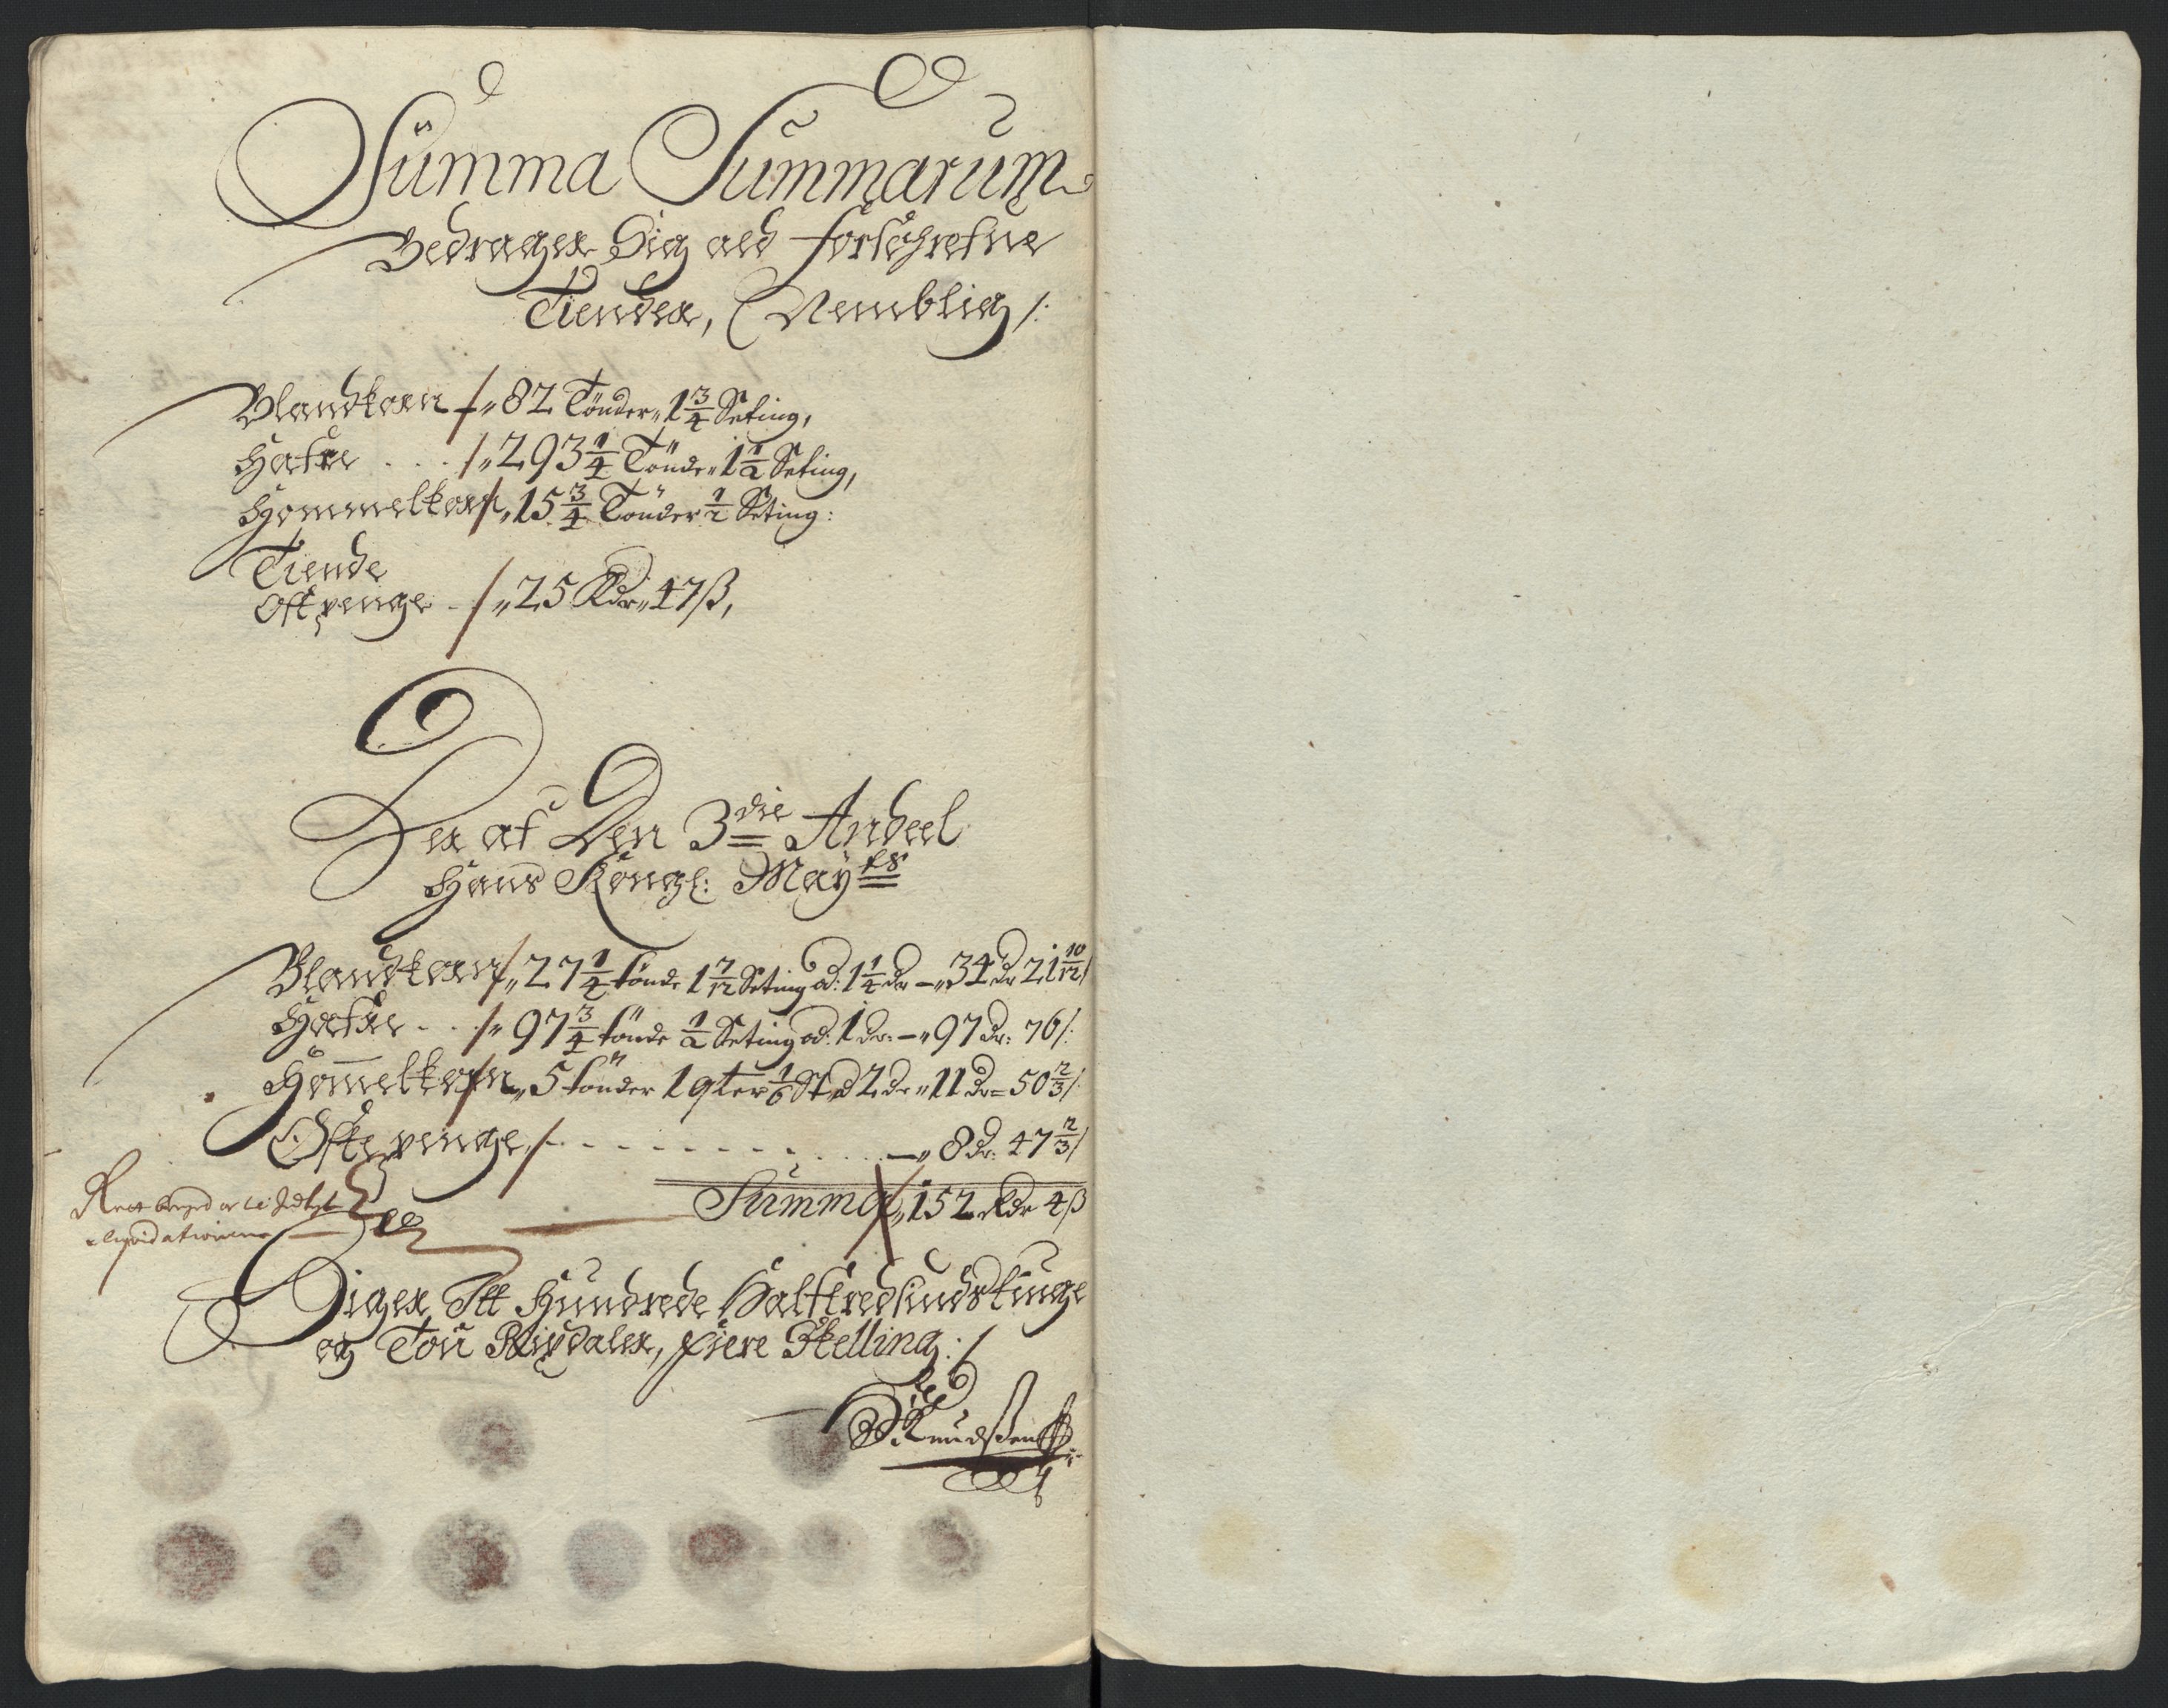 Summa Summarum
Bedrager Sig ald forschrefne
Tiender, Nemblig /:
Blandkorn /„ 82 Tönder „ 1 3/4 Seting,
Hafre . . . /„ 293 1/4 Tönde „ 1 1/2 Seting,
Hommelkorn /„ 15 3/4 Tönder 1/2 Seting:
Tiende
Ost penge . /„ 25 Rdr „ 47 ß,
Der af Den 3die Andeel
Hans Kongl: Mayts
Blandkorn /„ 27 1/4 tönde 1 7/12 Seting ad: 1 1/4 dr – „ 34 dr 21 10/12 /
Hafre . . /„ 97 3/4 tönde 1/2 Seting ad: 1 dr: – „ 97 dr: 76 /:
Hom̄elkorn „ 5 tönder 1 qter 1/6 St ad 2 dr „ 11 dr = 50 2/3 /:
Oste penge, /- - - - - - - - . . . . – „ 8 dr: 47 2/3 /
Summa „ 152 Rdr 4 ß
liqvidationen
Siger Itt Hundrede Halftredsindstiuge
og Toü Rixdaler, fiere Skelling : /
Knudßen